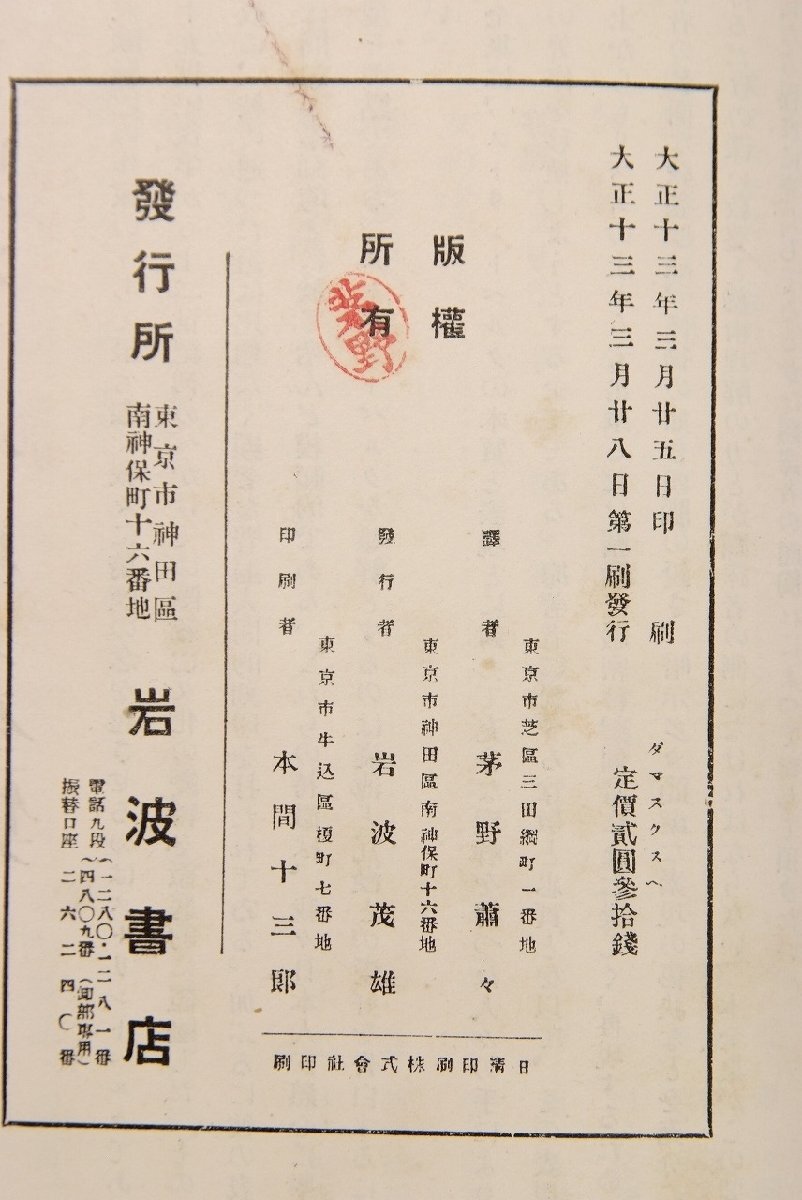 大正十三年三月廿五日印刷
大正十三年三月廿八日第一刷發行
ダマスクスへ
定價貳圓參拾錢
版權
所有
茅野
東京市芝區三田綱町一番地
譯者 茅野蕭々
東京市神田區南神保町十六番地
發行者 岩波茂雄
東京市牛込區榎町七番地
印刷者 本間十三郎
日清印刷株式會社印刷
發行所 東京市神田區
南神保町十六番地
岩波書店
電話九段(一二八〇・一二八一番
(四八〇九番(卸部專用)
振替口座二六二四〇番